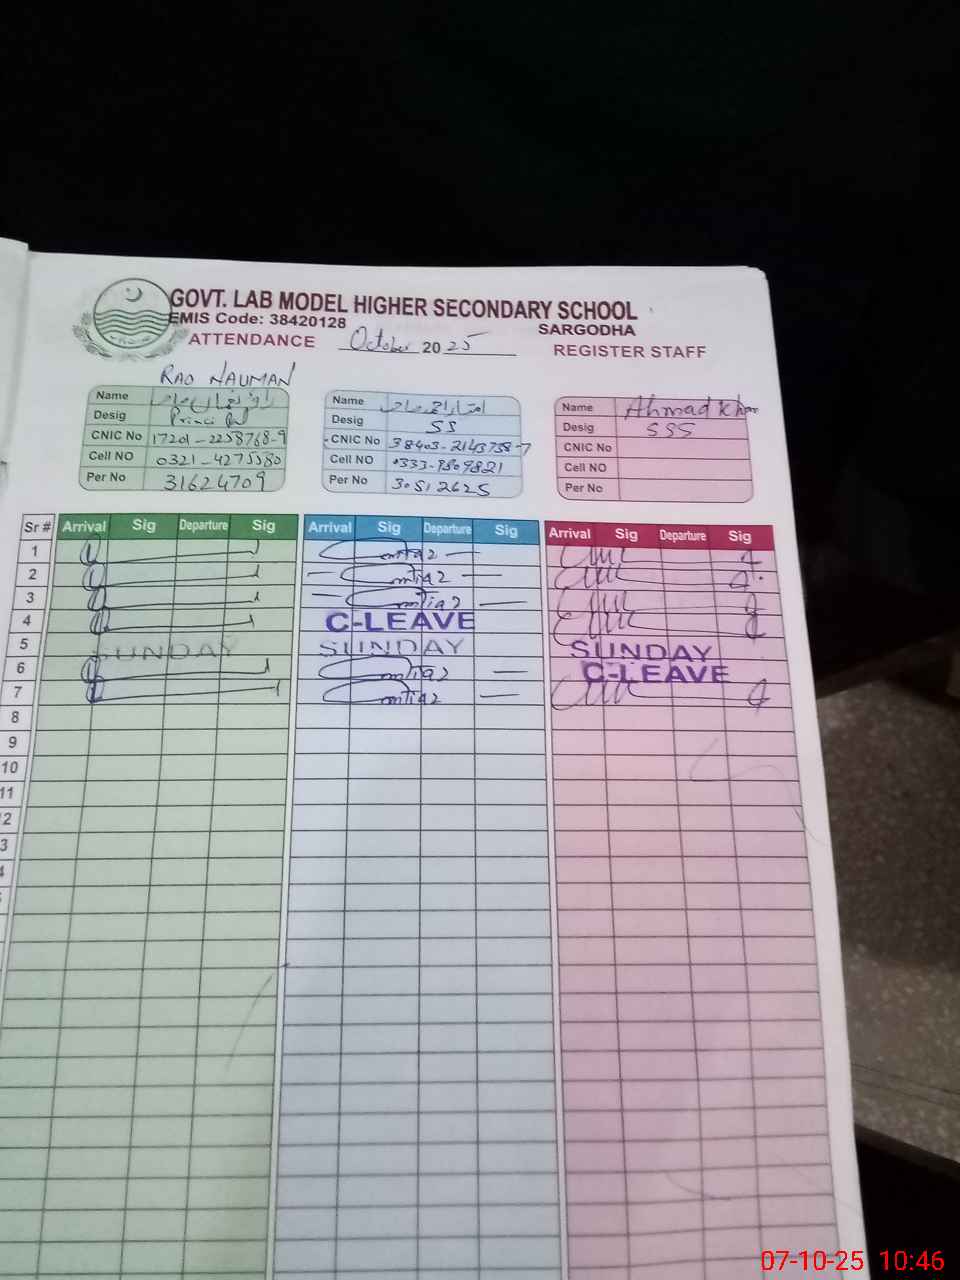 GOVT. LAB MODEL HIGHER SECONDARY SCHOOL
EMIS Code: 38420128
SARGODHA
ATTENDANCE October 2025 REGISTER STAFF
RAO NAUMAN
Name راؤ نعمان صاحب
Desig Principal
CNIC No 17201-2258768-9
Cell NO 0321-4275580
Per No 31624709
Name امتیاز احمد صاحب
Desig SS
CNIC No 38403-2143758-7
Cell NO 0333-9809821
Per No 30512625
Name Ahmad Khan
Desig SSS
CNIC No
Cell NO
Per No
Sr # Arrival Sig Departure Sig Arrival Sig Departure Sig Arrival Sig Departure Sig
1
2
3
4 C-LEAVE
5 SUNDAY SUNDAY SUNDAY
6 C-LEAVE
7
8
9
10
11
2
3
4
07-10-25 10:46